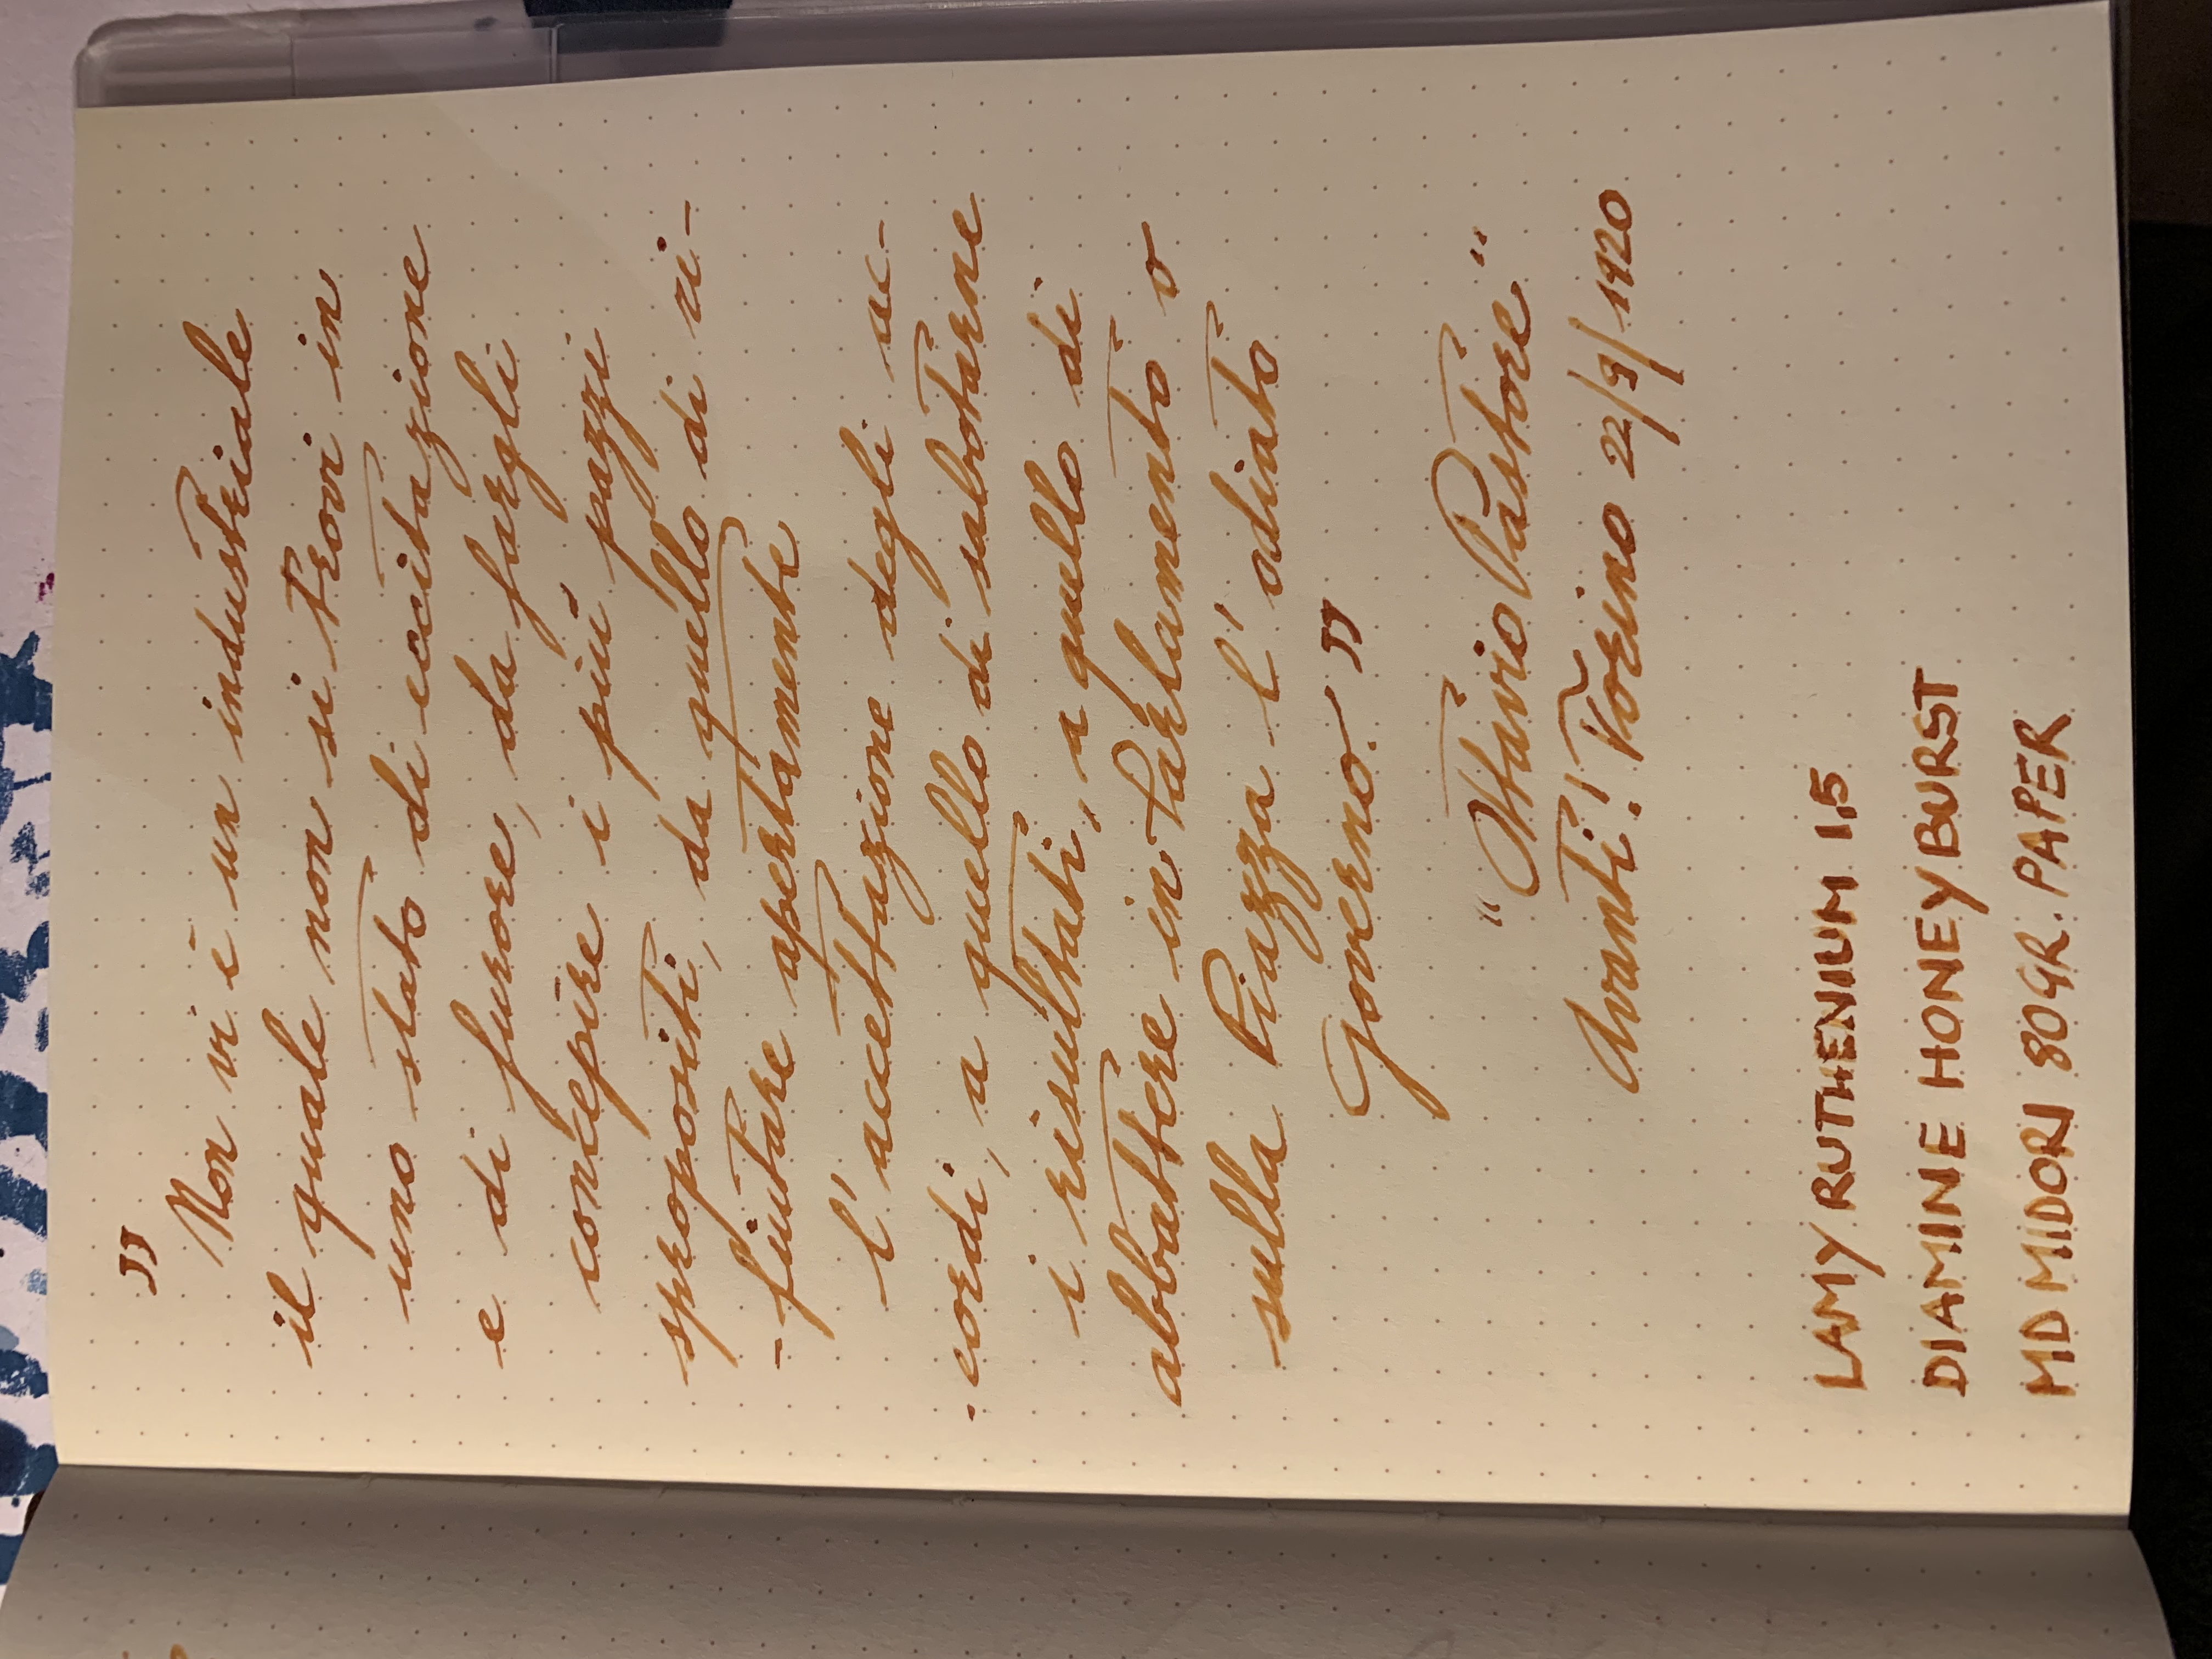 "
Non vi è un industriale
il quale non si trovi in
uno stato di eccitazione
e di furore, da fargli
concepire i più pazzi
spropositi, da quello di ri-
-fiutare apertamente
l'accettazione degli ac-
-cordi, a quello di sabotarne
i risultati, a quello di
abbattere in Parlamento o
sulla Piazza l'odiato
governo. "
"Ottavio Pastore"
Avanti! Torino 22/9/1920
LAMY RUTHENIUM 1,5
DIAMINE HONEY BURST
MD MIDORI 80GR. PAPER